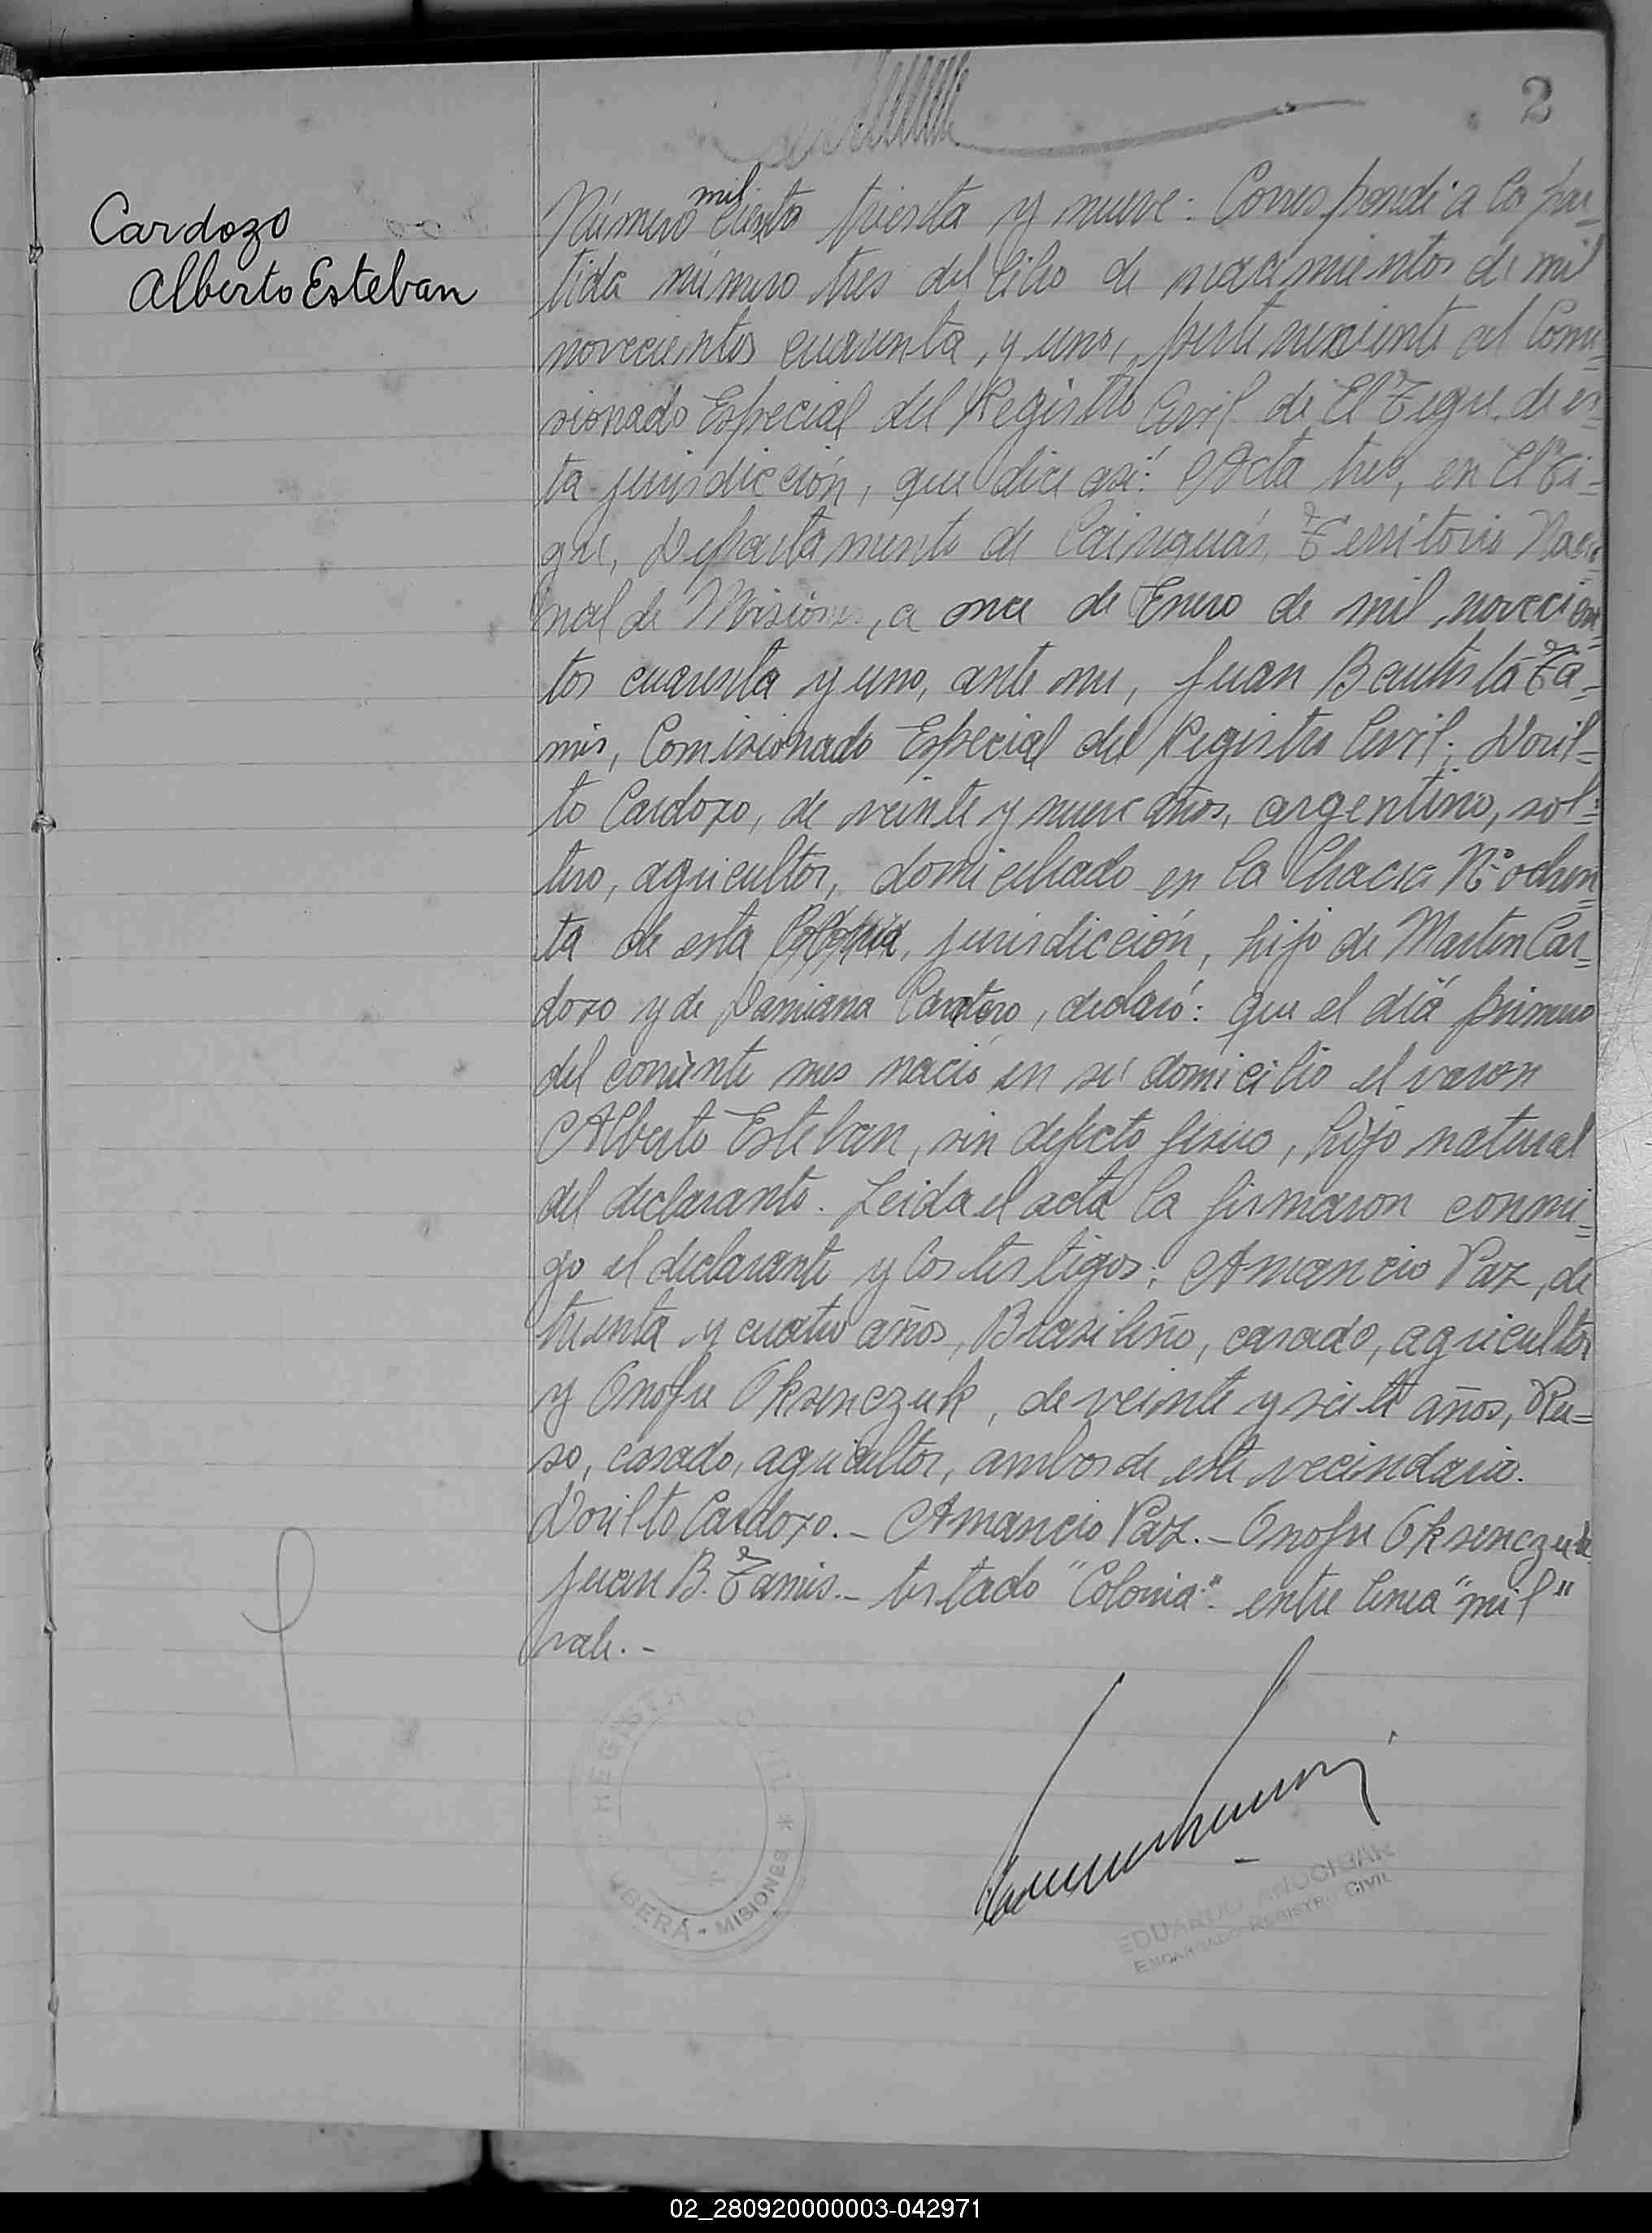 2
Cardozo
Alberto Esteban
Número mil ciento treinta y nueve: Corresponde a la par-
tida número tres del libro de nacimientos de mil
novecientos cuarenta, y uno, perteneciente al Comi-
sionado Especial del Registro Civil de El Tigre, de es-
ta jurisdicción, que dice así: Acta tres, en El Ti-
gre, Departamento de Cainguás, Territorio Nacio-
nal de Misiones, a once de Enero de mil novecien-
tos cuarenta y uno, ante mi, Juan Bautista Ta-
mis, Comisionado Especial del Registro Civil; Doril-
to Cardozo, de veinte y nueve años, argentino, sol-
tero, agricultor, domiciliado en la Chacra Nº ochen-
ta de esta Colonia, jurisdicción, hijo de Martin Car-
dozo y de Damiana declaró: que el día primero
del corriente mes nació en su domicilio el varon
Alberto Esteban, sin defecto fisico, hijo natural
del declarante. Leida el acta la firmaron conmi-
go el declarante y los testigos: Amancio Paz, de
treinta y cuatro años, Brasileño, casado, agricultor
y Onofre Oksenczuk, de veinte y siete años, Ru=
so, casado, agricultor, ambos de este vecindario.
Dorilto Cardozo.- Amancio Paz.- Onofre Oksenczuk
Juan B. Tamis.- testado "Colonia": entre linea "mil"
vale.-
REGISTRO CIVIL * OBERÁ - MISIONES
EDUARDO ANOCIBAR
ENCARGADO REGISTRO CIVIL
02_280920000003-042971